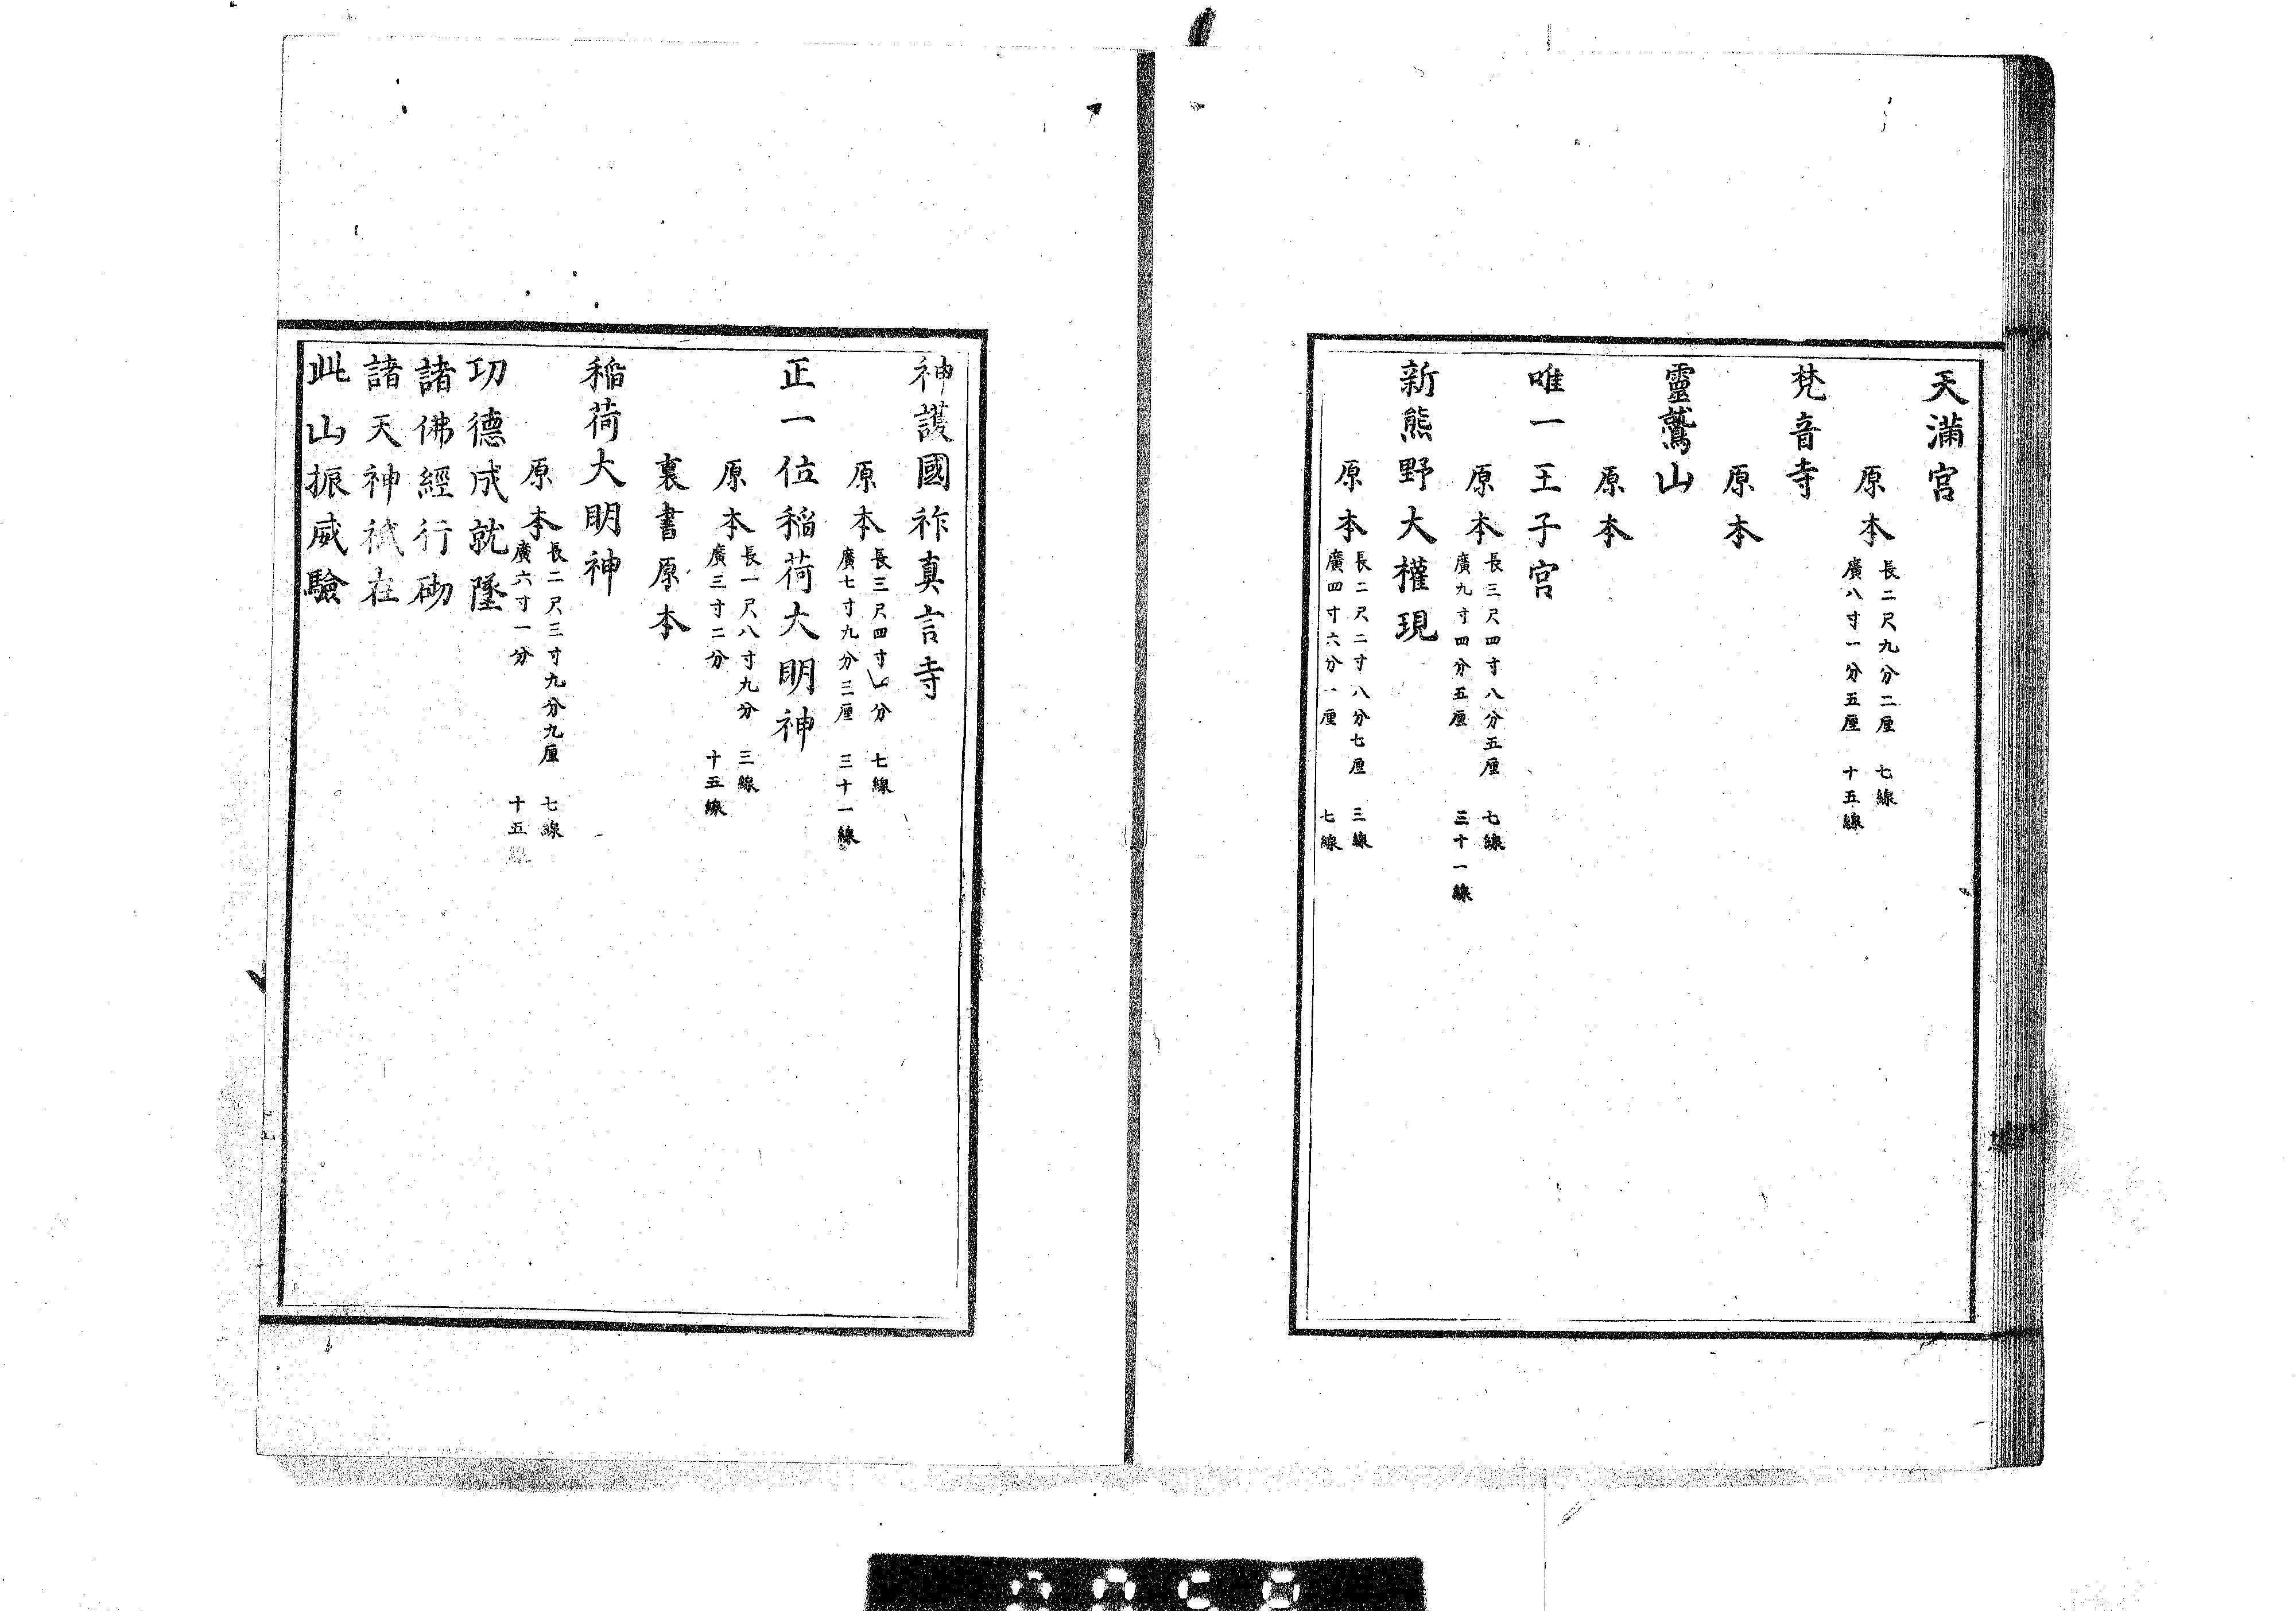 天滿宮
原本 長二尺九分二厘 七線
廣八寸一分五厘 十五線
梵音寺
原本
靈鷲山
原本
唯一王子宮
原本 長三尺四寸八分五厘 七線
廣九寸四分五厘 三十一線
新熊野大權現
原本 長二尺二寸八分七厘 三線
廣四寸六分一厘 七線
神護國祚真言寺
原本 長三尺四寸一分 七線
廣七寸九分三厘 三十一線
正一位稲荷大明神
原本 長一尺八寸九分 三線
廣三寸二分 十五線
裏書原本
稲荷大明神
原本 長二尺三寸九分九厘 七線
廣六寸一分 十五線
功德成就墜
諸佛經行砌
諸天神祇在
此山振威驗